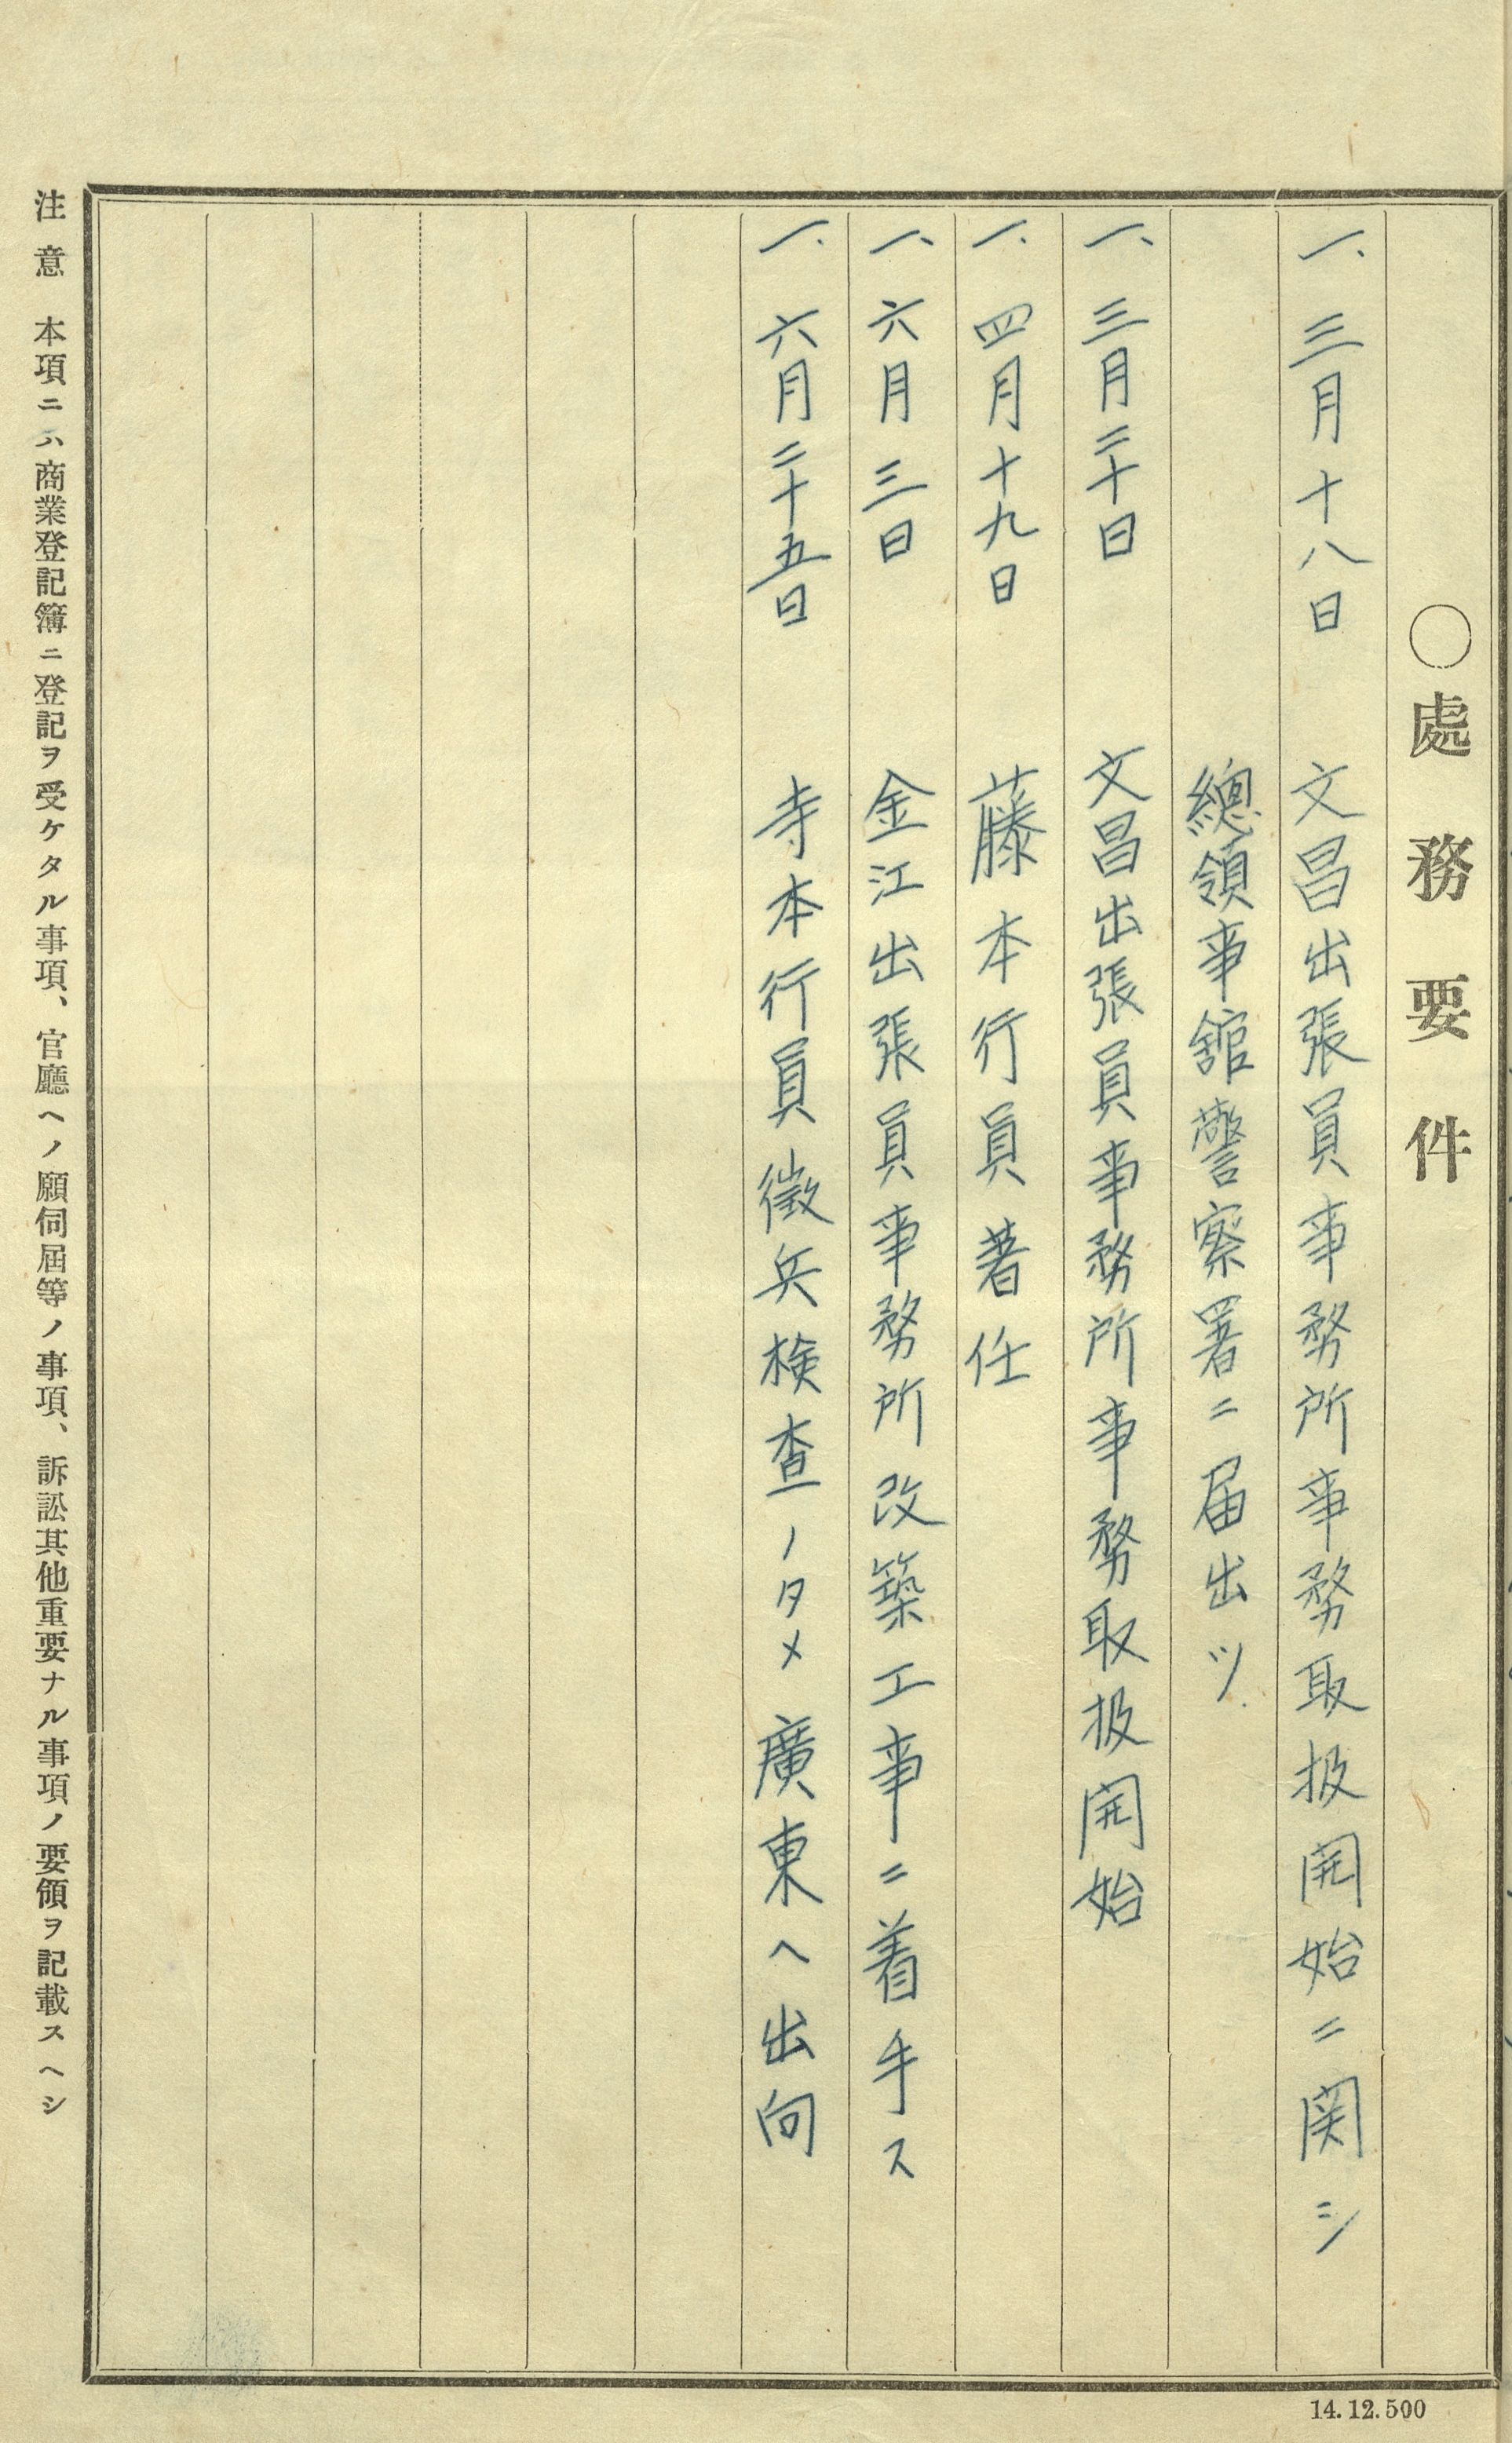 〇處務要件
一、三月十八日 文昌出張員事務所事務取扱開始ニ関シ
總領事舘警察署ニ届出ツ
一、三月二十日 文昌出張員事務所事務取扱開始
一、四月十九日 藤本行員着任
一、六月三日 金江出張員事務所改築工事ニ着手ス
一、六月二十五日 寺本行員徴兵検査ノタメ廣東ヘ出向
注意 本項ニハ商業登記簿ニ登記ヲ受ケタル事項、官廳ヘノ願伺屆等ノ事項、訴訟其他重要ナル事項ノ要領ヲ記載スヘシ
14.12.500